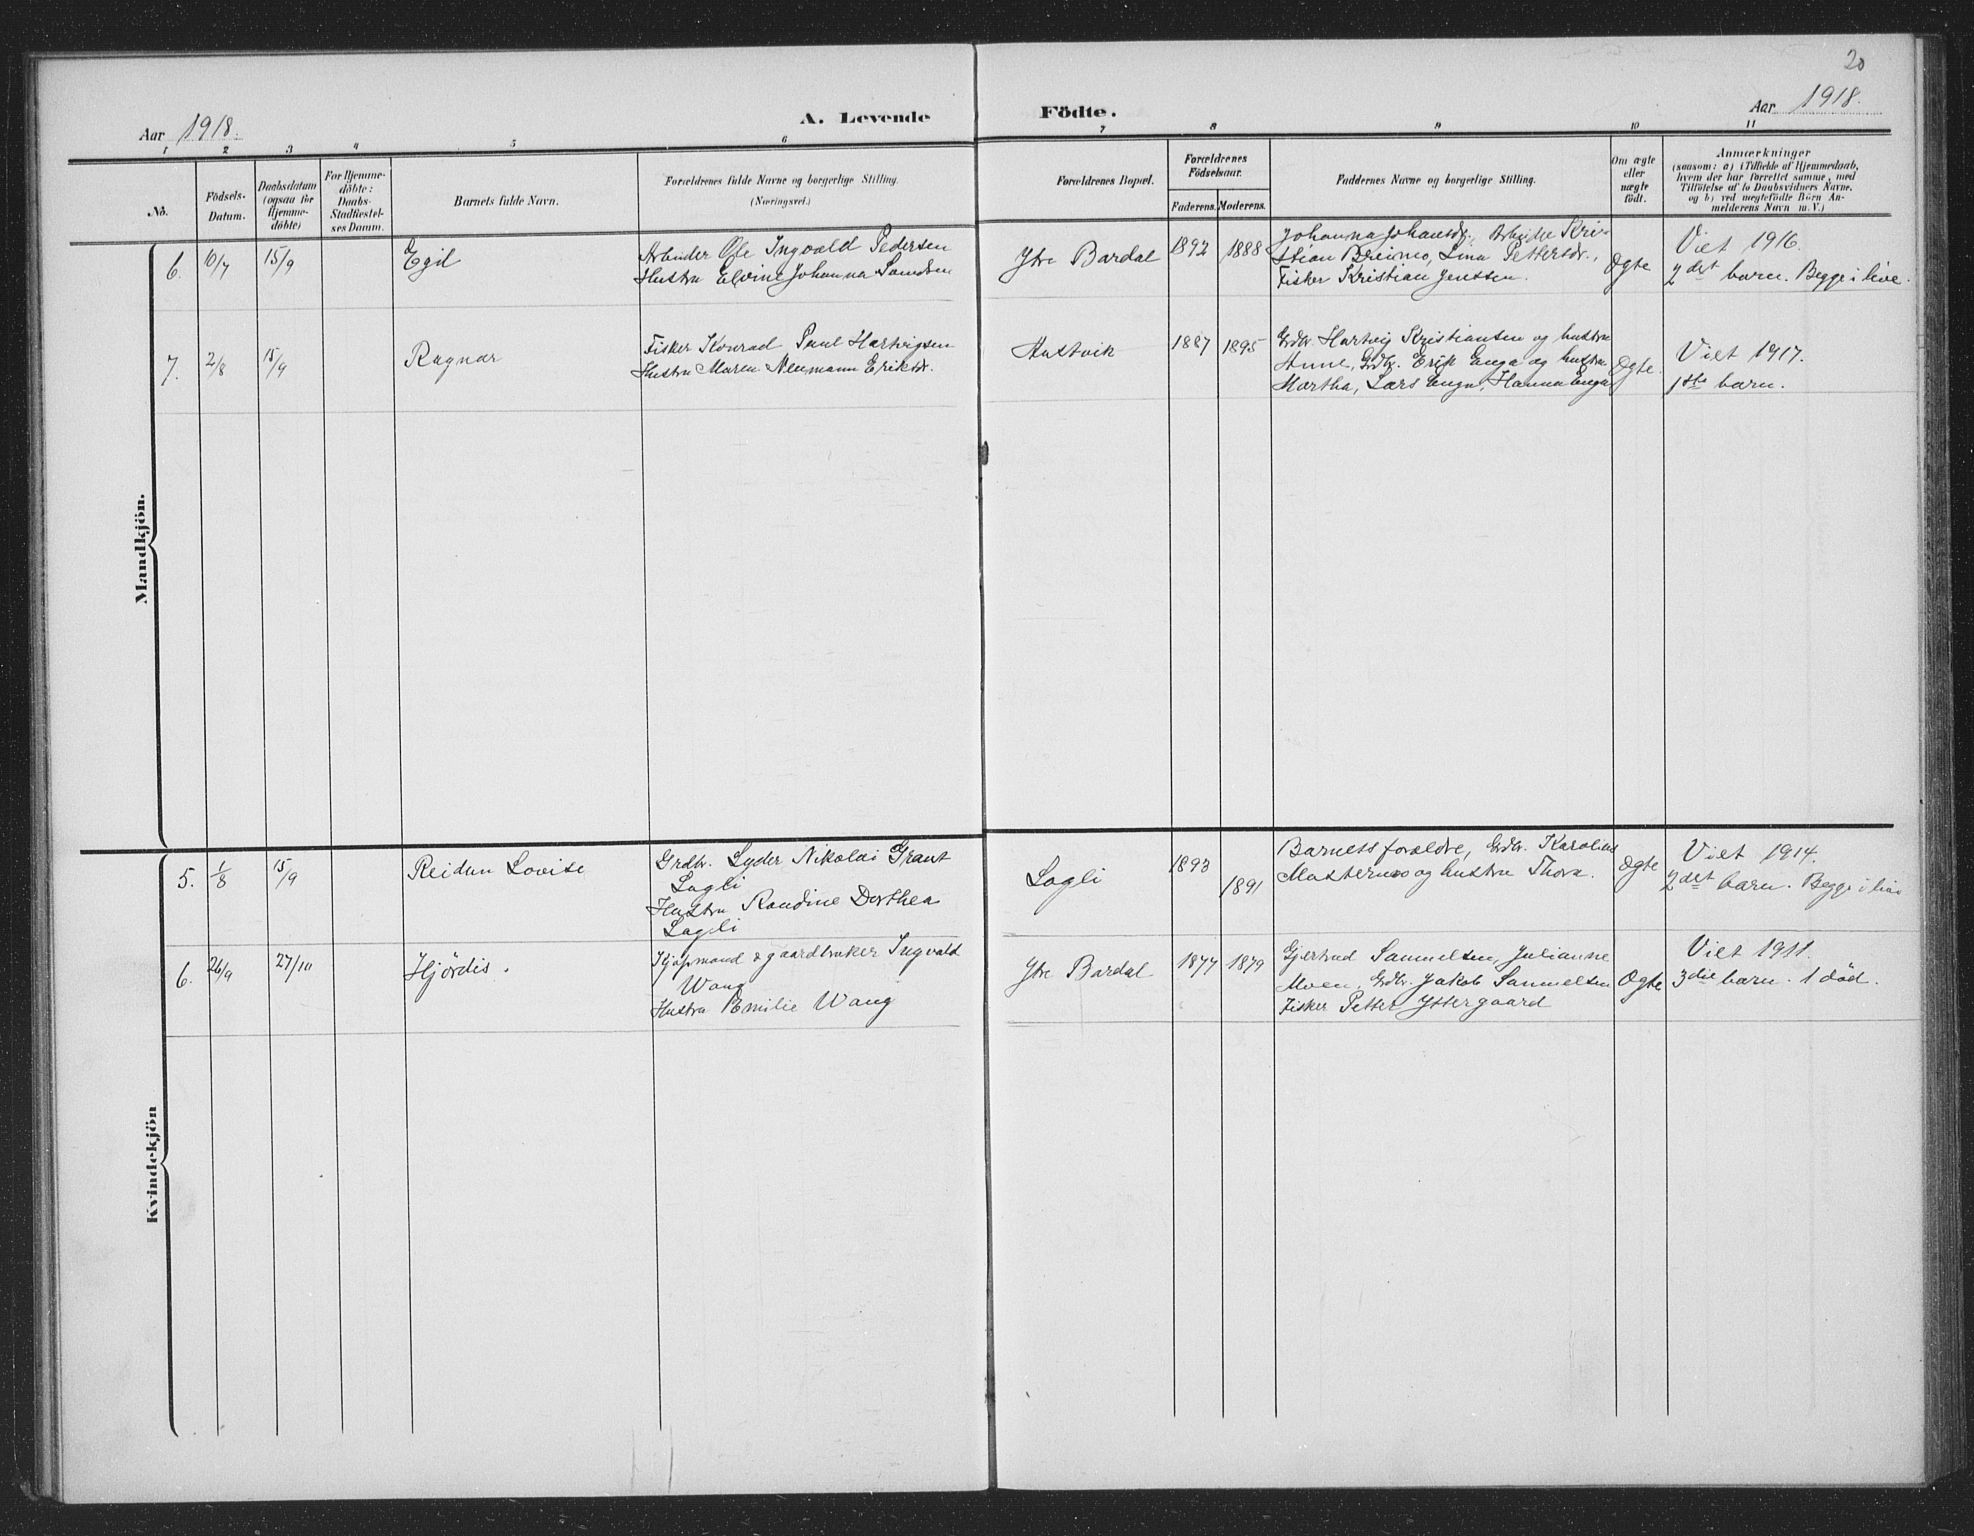 20
Aar 1918.
A. Levende
Födte.
Aar 1918.
1 2 3 4 5 6 7 8 9 10 11
No.
Födsels-
Datum.
Daabsdatum
(ogsaa for
Hjemme-
döbte)
For Hjemme-
döbte:
Daabs-
Stadfæstel-
ses Datum.
Barnets fulde Navn.
Forældrenes fulde Navne og borgerlige Stilling.
(Næringsvei.)
Forældrenes Bopæl.
Forældrenes
Födselsaar.
Faderens. Moderens.
Faddernes Navne og borgerlige Stilling.
Om ægte
eller
uægte
födt.
Anmærkninger
(saasom: a) i Tilfælde af Hjemmedaab,
hvem der har forrettet samme, med
Tilföielse af to Daabsvidners Navne,
og b) ved uægtefödte Börn An-
melderens Navn m. V.)
Mandkjön.
6. 10/7 15/9 Egil
Arbeider Ole Ingvald Pedersen
Hustru Elvine Johanna
Ytre Bardal 1892 1888
Johanna Johansdr., Arbeider Kri-
stian Breimo, Lina Pettersdr.,
Fisker Kristian Jenssen.
Ægte
Viet 1916.
2det barn. Begge i live.
7. 2/8 15/9 Ragnar
Fisker Konrad Paul Hartvigsen
Hustru Maren Neumann Eriksdr.
Hustvik 1887 1895
Grdbr. Hartvig Kristiansen og hustru
Anne, Grdbr. Erik Enga og hustru
Martha, Lars Enga, Hanna Enga
Ægte.
Viet 1917.
1ste barn.
Kvindekjön
5. 1/8 15/9 Reidun Lovise
Grdbr. Lyder Nikolai Grant
Lagli
Hustru Randine Dorthea
Lagli
Lagli 1893 1891
Barnets forældre, Grdbr. Karolius
Mastermo og hustru Thora.
Ægte
Viet 1914.
2det barn. Begge i live
6. 26/9 27/10 Hjørdis.
Kjøpmand & gaardbruker Ingvald
Wang
Hustru Emilie Wang
Ytre Bardal 1877 1879
Gjertrud Samuelsen, Julianne
Moen, Grdbr. Jakob Samuelsen
Fisker Petter Yttergaard
Ægte
Viet 1911.
3die barn. 1 død.